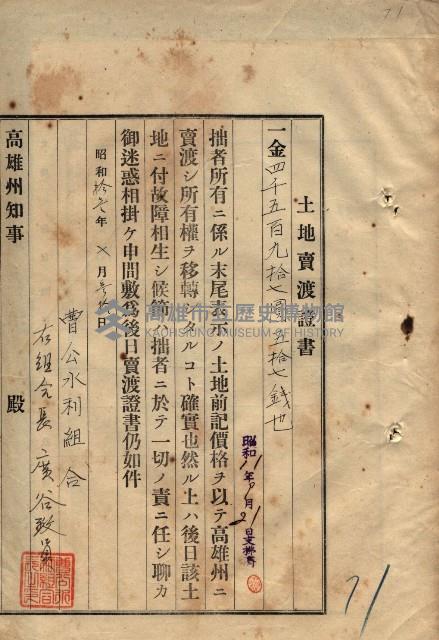 71
土地賣渡證書
一金四千五百九拾七圓五拾七錢也
昭和11年9月21日支拂濟
拙者所有ニ係ル末尾表示ノ土地前記價格ヲ以テ高雄州ニ
賣渡シ所有權ヲ移轉シタルコト確實也然ル上ハ後日該土
地ニ付故障相生シ候節ハ拙者ニ於テ一切ノ責ニ任シ聊カ
御迷惑相掛ケ申間敷爲後日賣渡證書仍如件
昭和拾 年 月 日
曹公水利組合
右組合長廣谷致員
高雄州知事 殿
高雄市立歷史博物館
KAOHSIUNG MUSEUM OF HISTORY
71